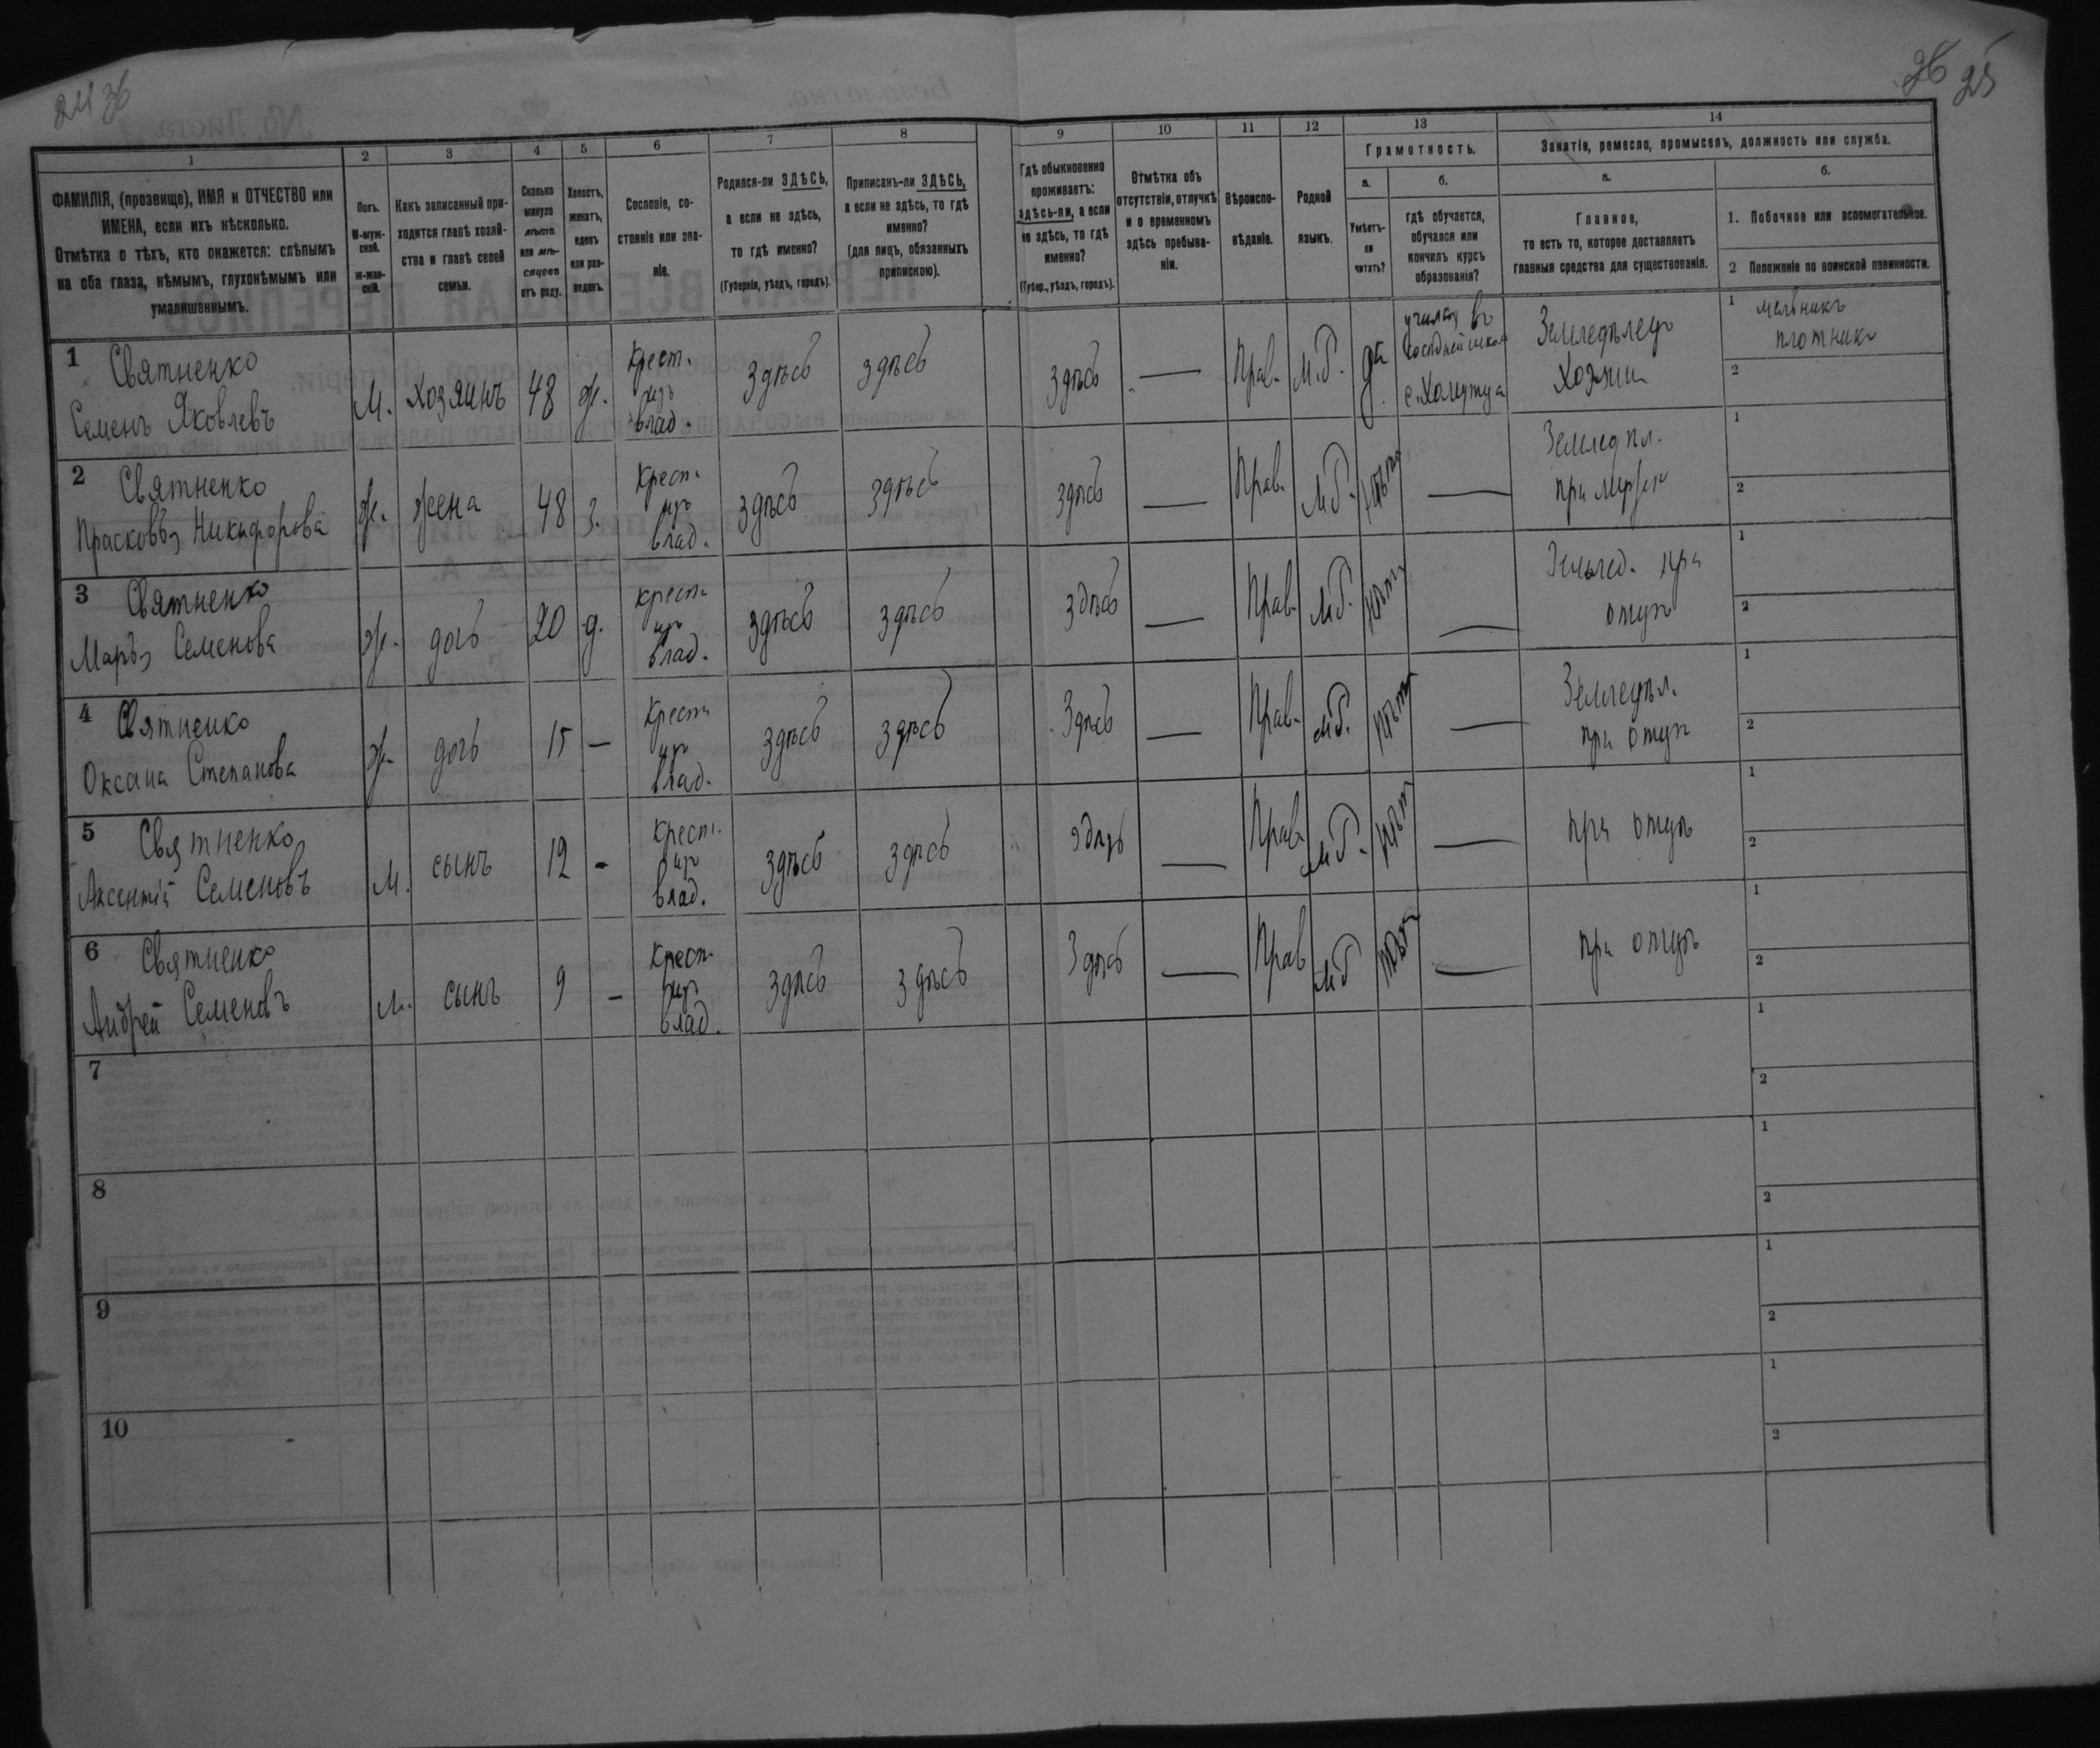 24 зв
26 25
1
2
3
4
5
6
7
8
9
10
11
12
13
14
ФАМИЛІЯ, (прозвище), ИМЯ и ОТЧЕСТВО или
ИМЕНА, если ихъ нѣсколько.
Отмѣтка о тѣхъ, кто окажется: слѣпымъ
на оба глаза, нѣмымъ, глухонѣмымъ или
умалишеннымъ.
Полъ.
М-муж-
ской.
ж-жен-
скій.
Какъ записанный при-
ходится главѣ хозяй-
ства и главѣ своей
семьи.
Сколько
минуло
лѣтъ
или мѣ-
сяцевъ
отъ роду.
Холостъ,
женатъ,
вдовъ
или раз-
веденъ.
Сословіе, со-
стояніе или зва-
ніе.
Родился-ли ЗДѢСЬ,
а если не здѣсь,
то гдѣ именно?
(Губернія, уѣздъ, городъ).
Приписанъ-ли ЗДѢСЬ,
а если не здѣсь, то гдѣ
именно?
(для лицъ, обязанныхъ
припискою).
Гдѣ обыкновенно
проживаетъ:
здѣсь-ли, а если
не здѣсь, то гдѣ
именно?
(Губер., уѣздъ, городъ).
Отмѣтка объ
отсутствіи, отлучкѣ
и о временномъ
здѣсь пребыва-
ніи.
Вѣроиспо-
вѣданіе.
Родной
языкъ.
Грамотность.
а.
б.
Умѣетъ-
ли
читать?
гдѣ обучается,
обучался или
кончилъ курсъ
образованія?
Занятіе, ремесло, промыселъ, должность или служба.
а.
б.
Главное,
то есть то, которое доставляетъ
главныя средства для существованія.
1. Побочное или вспомогательное.
2 Положеніе по воинской повинности.
1 Святненко
Семенъ Яковлевъ
М. Хозяинъ 48 ж.
Крест.
изъ
влад.
здѣсь здѣсь здѣсь — Прав. М.б. да
учился въ
с. Хомутца
Земледѣлецъ
Хозяин
1 мельникъ
плотникъ
2
2 Святненко
Прасковья Никифорова
ж. жена 48 з.
Крест.
изъ
влад.
здѣсь здѣсь здѣсь — Прав. Мб. нѣтъ —
Земледѣл.
при мужѣ
1
2
3 Святненко
Марья Семенова
ж. дочь 20 д.
Крест.
изъ
влад.
здѣсь здѣсь здѣсь — Прав. Мб. нѣтъ —
Земледѣл. при
отцѣ
1
2
4 Святненко
Оксана Степанова
ж. дочь 15 —
Крест.
изъ
влад.
здѣсь здѣсь здѣсь — Прав. Мб. нѣтъ —
Земледѣл.
при отцѣ
1
2
5 Святненко
Аксентій Семеновъ
М. сынъ 12 -
Крест.
изъ
влад.
здѣсь здѣсь здѣсь — Прав. Мб. нѣтъ —
при отцѣ
1
2
6 Святненко
Андрей Семеновъ
М. сынъ 9 –
Крест.
изъ
влад.
здѣсь здѣсь здѣсь — Прав Мб нѣтъ —
при отцѣ
1
2
7
1
2
8
1
2
9
1
2
10
1
2